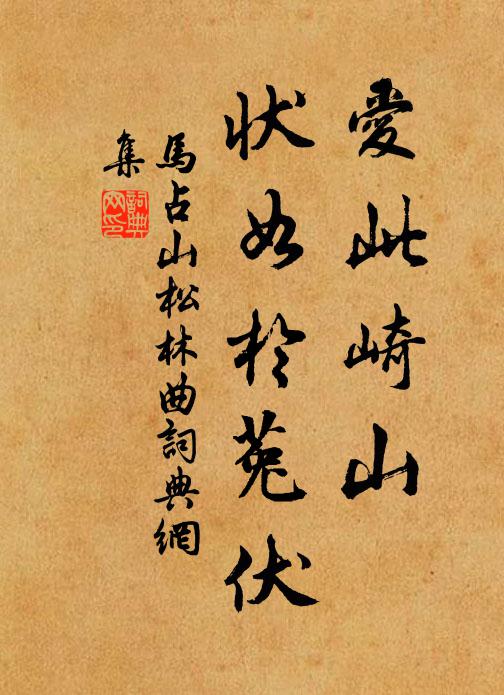 愛此崎山
狀如於菟伏
馬占山松林曲詞典網
集
詞典
网印